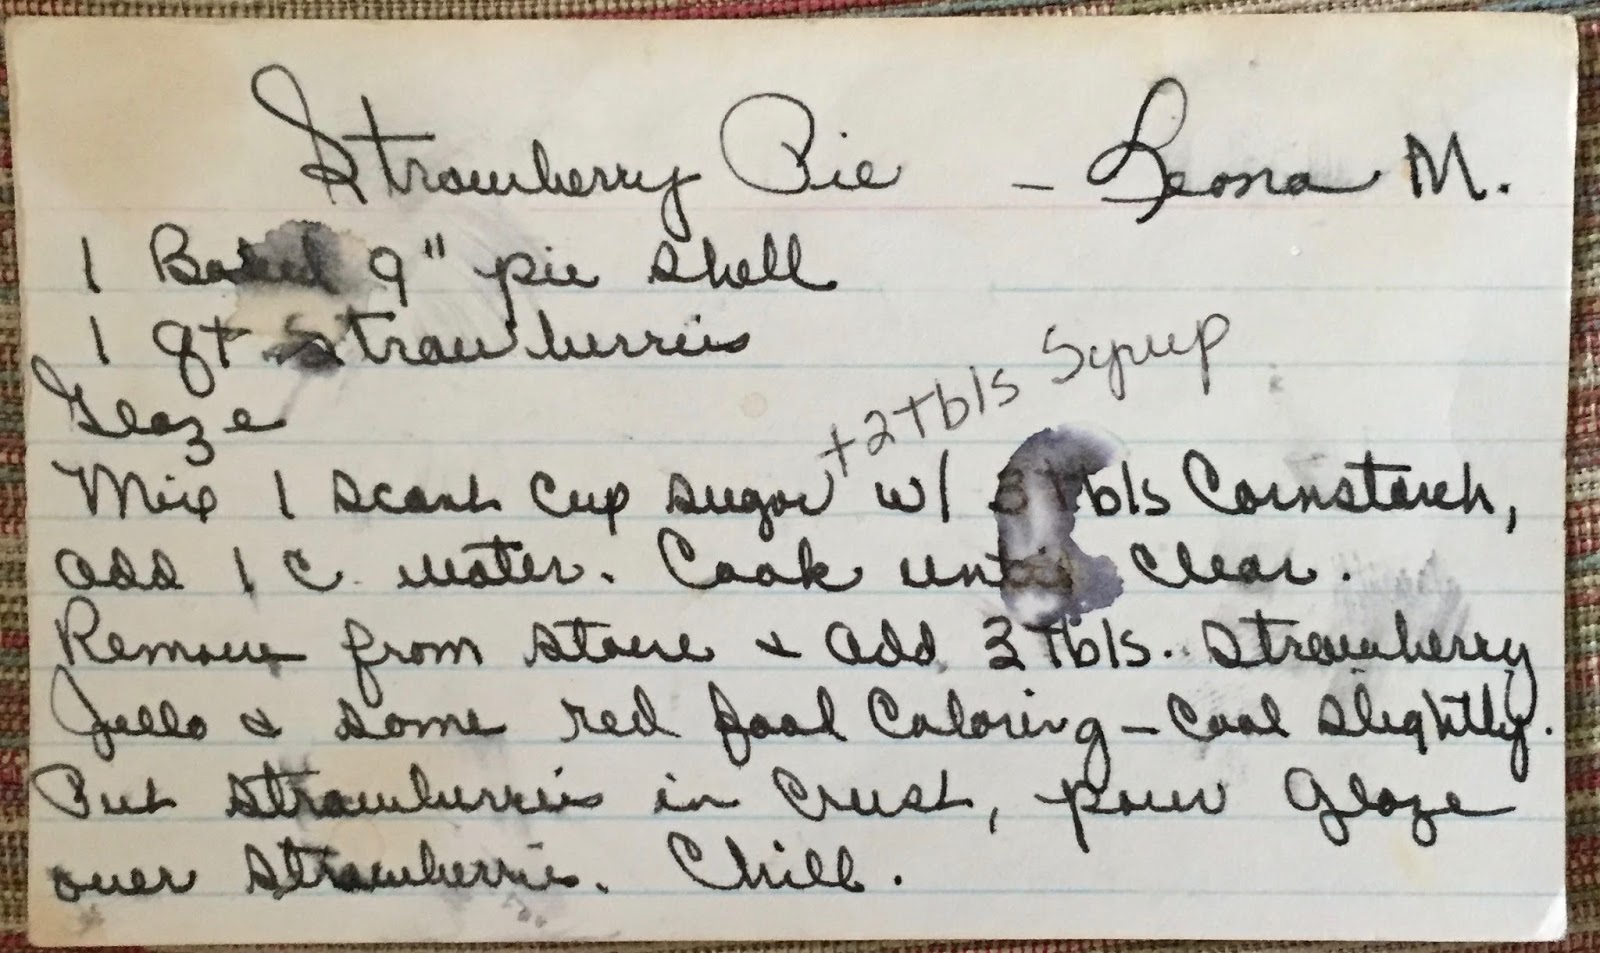 Strawberry Pie - Leona M.
1 Baked 9" pie shell
1 qt Strawberries
Glaze
+2 Tbls Syrup
Mix 1 scant cup sugar w/ 3 Tbls Cornstarch,
add 1 c. water. Cook until clear.
Remove from stove & add 3 Tbls. strawberry
Jello & some red food coloring - cool slightly.
Put strawberries in crust, pour glaze
over strawberries. Chill.